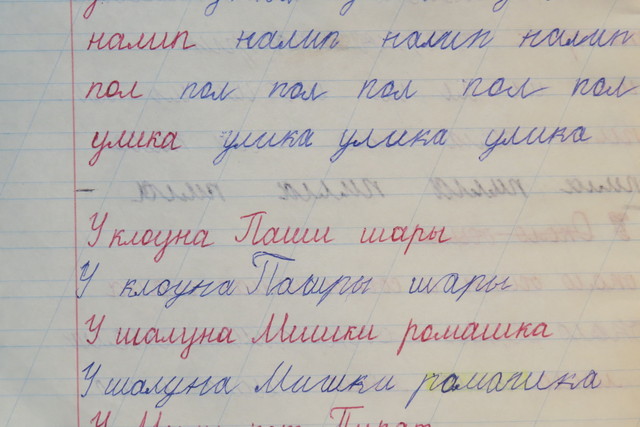 налип налип налип налип
пол пол пол пол пол пол
улика улика улика улика
У клоуна Паши шары
У клоуна Пашры шары
У шалуна Мишки ромашка
У шалуна Мишки ромашка